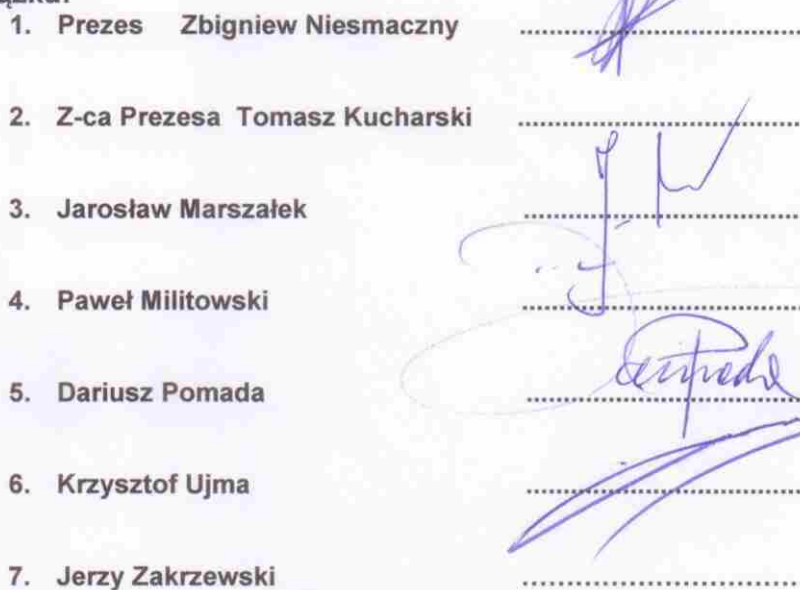 1. Prezes Zbigniew Niesmaczny
2. Z-ca Prezesa Tomasz Kucharski
3. Jarosław Marszałek
4. Paweł Militowski
5. Dariusz Pomada
6. Krzysztof Ujma
7. Jerzy Zakrzewski